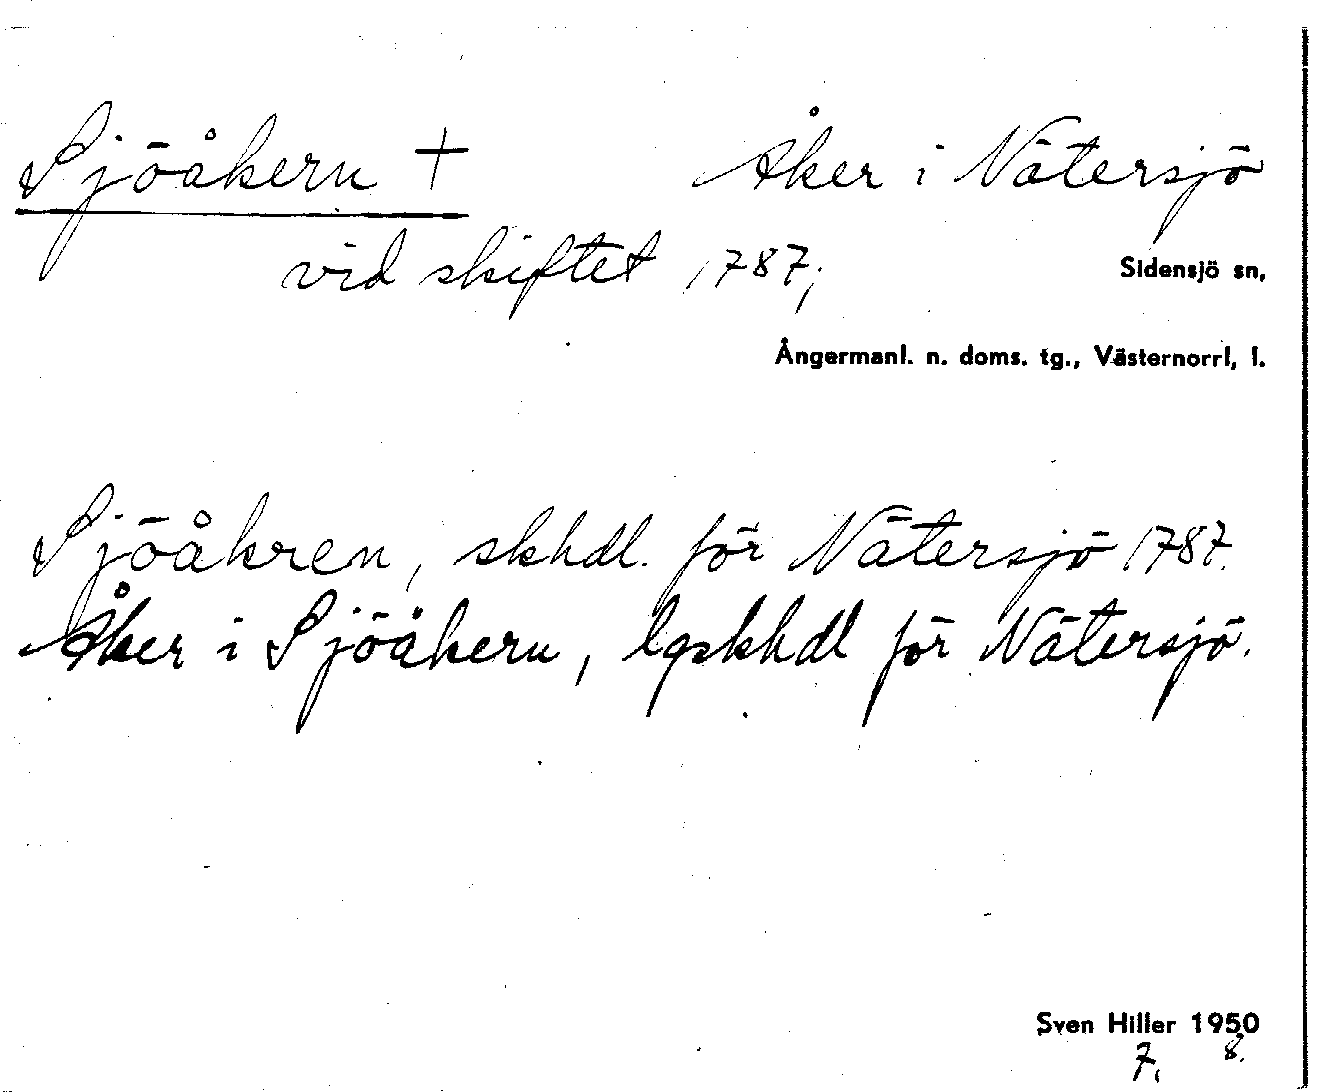 Sjöåkern + Åker i Nätersjö
vid skiftet 1787;
Sidensjö sn,
Ångermanl. n. doms. tg., Västernorrl, l.
Sjöåkren, skhdl. för Nätersjö 1787.
Åker i Sjöåkern, lgskhdl för Nätersjö.
Sven Hiller 1950
7. 8.